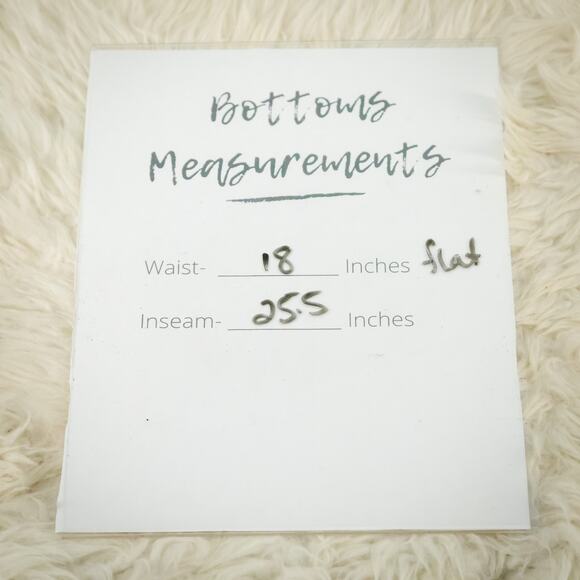 Bottoms
Measurements
Waist- 18 Inches flat
Inseam- 25.5 Inches